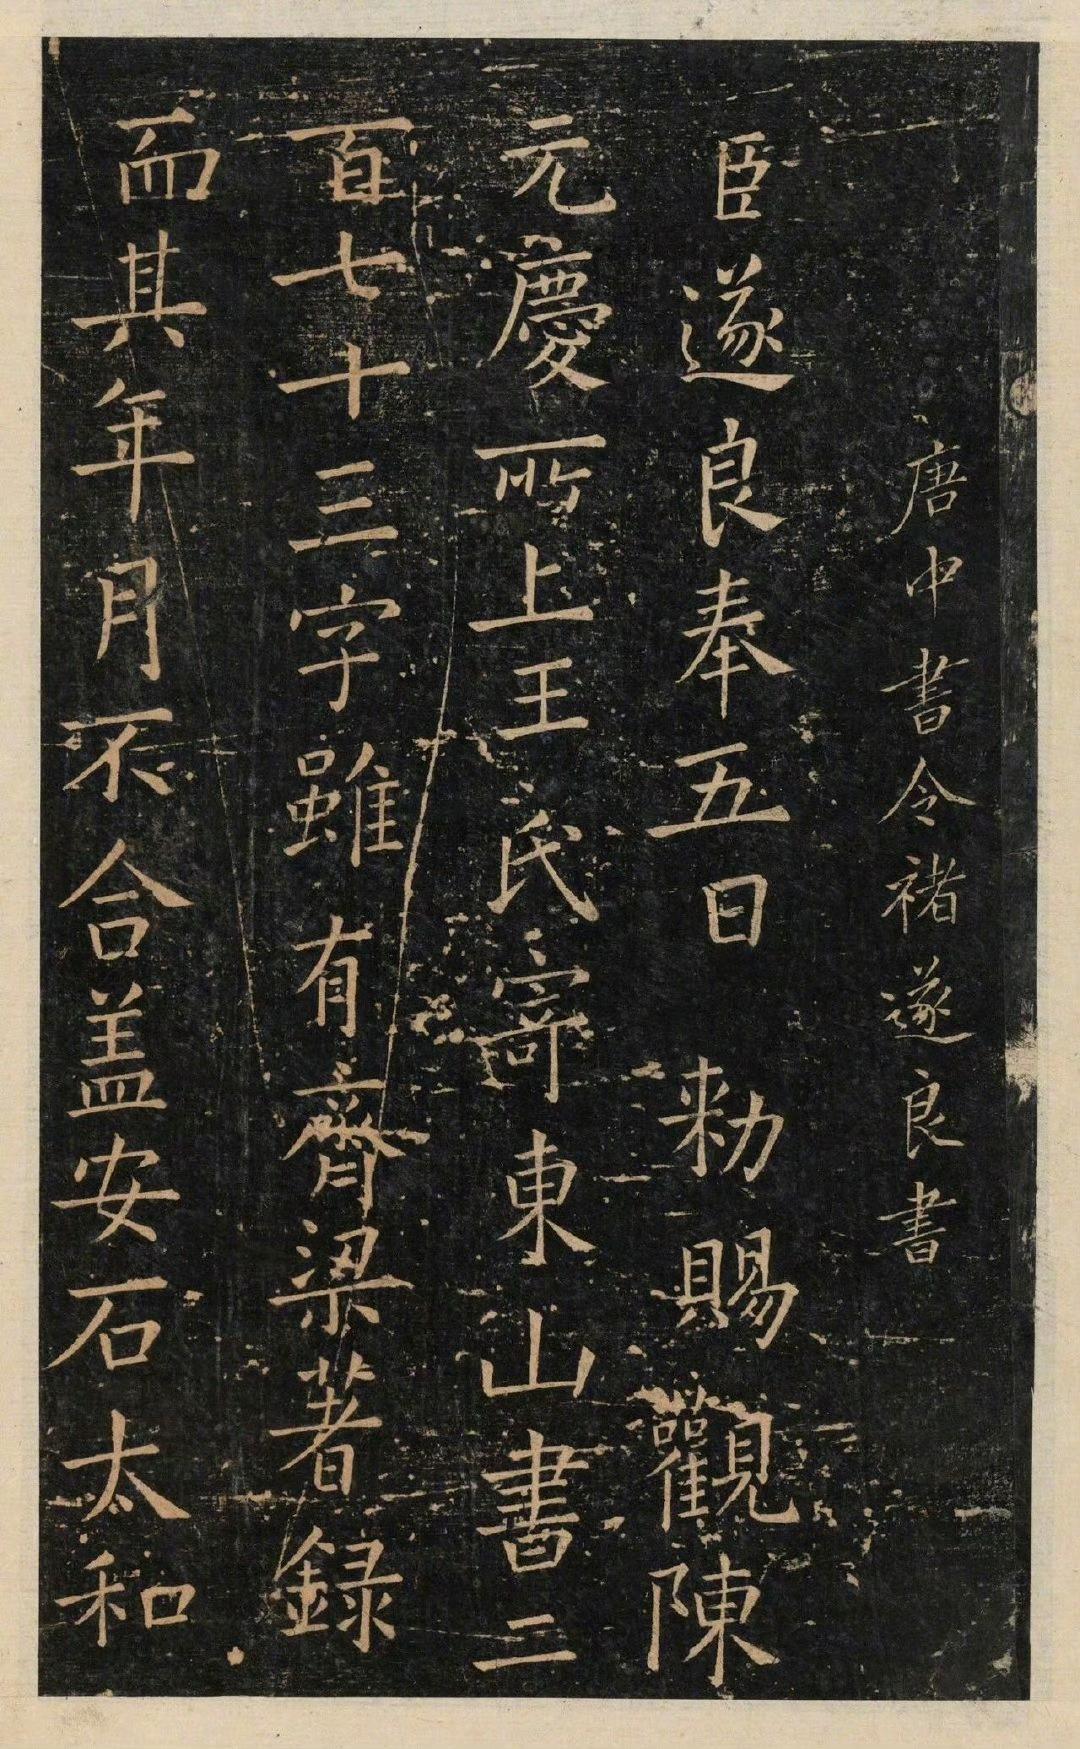 唐中書令褚遂良書
臣遂良奉五日勑賜觀陳
元慶所上王氏寄東山書二
百七十三字雖有齊梁著錄
而其年月不合盖安石太和